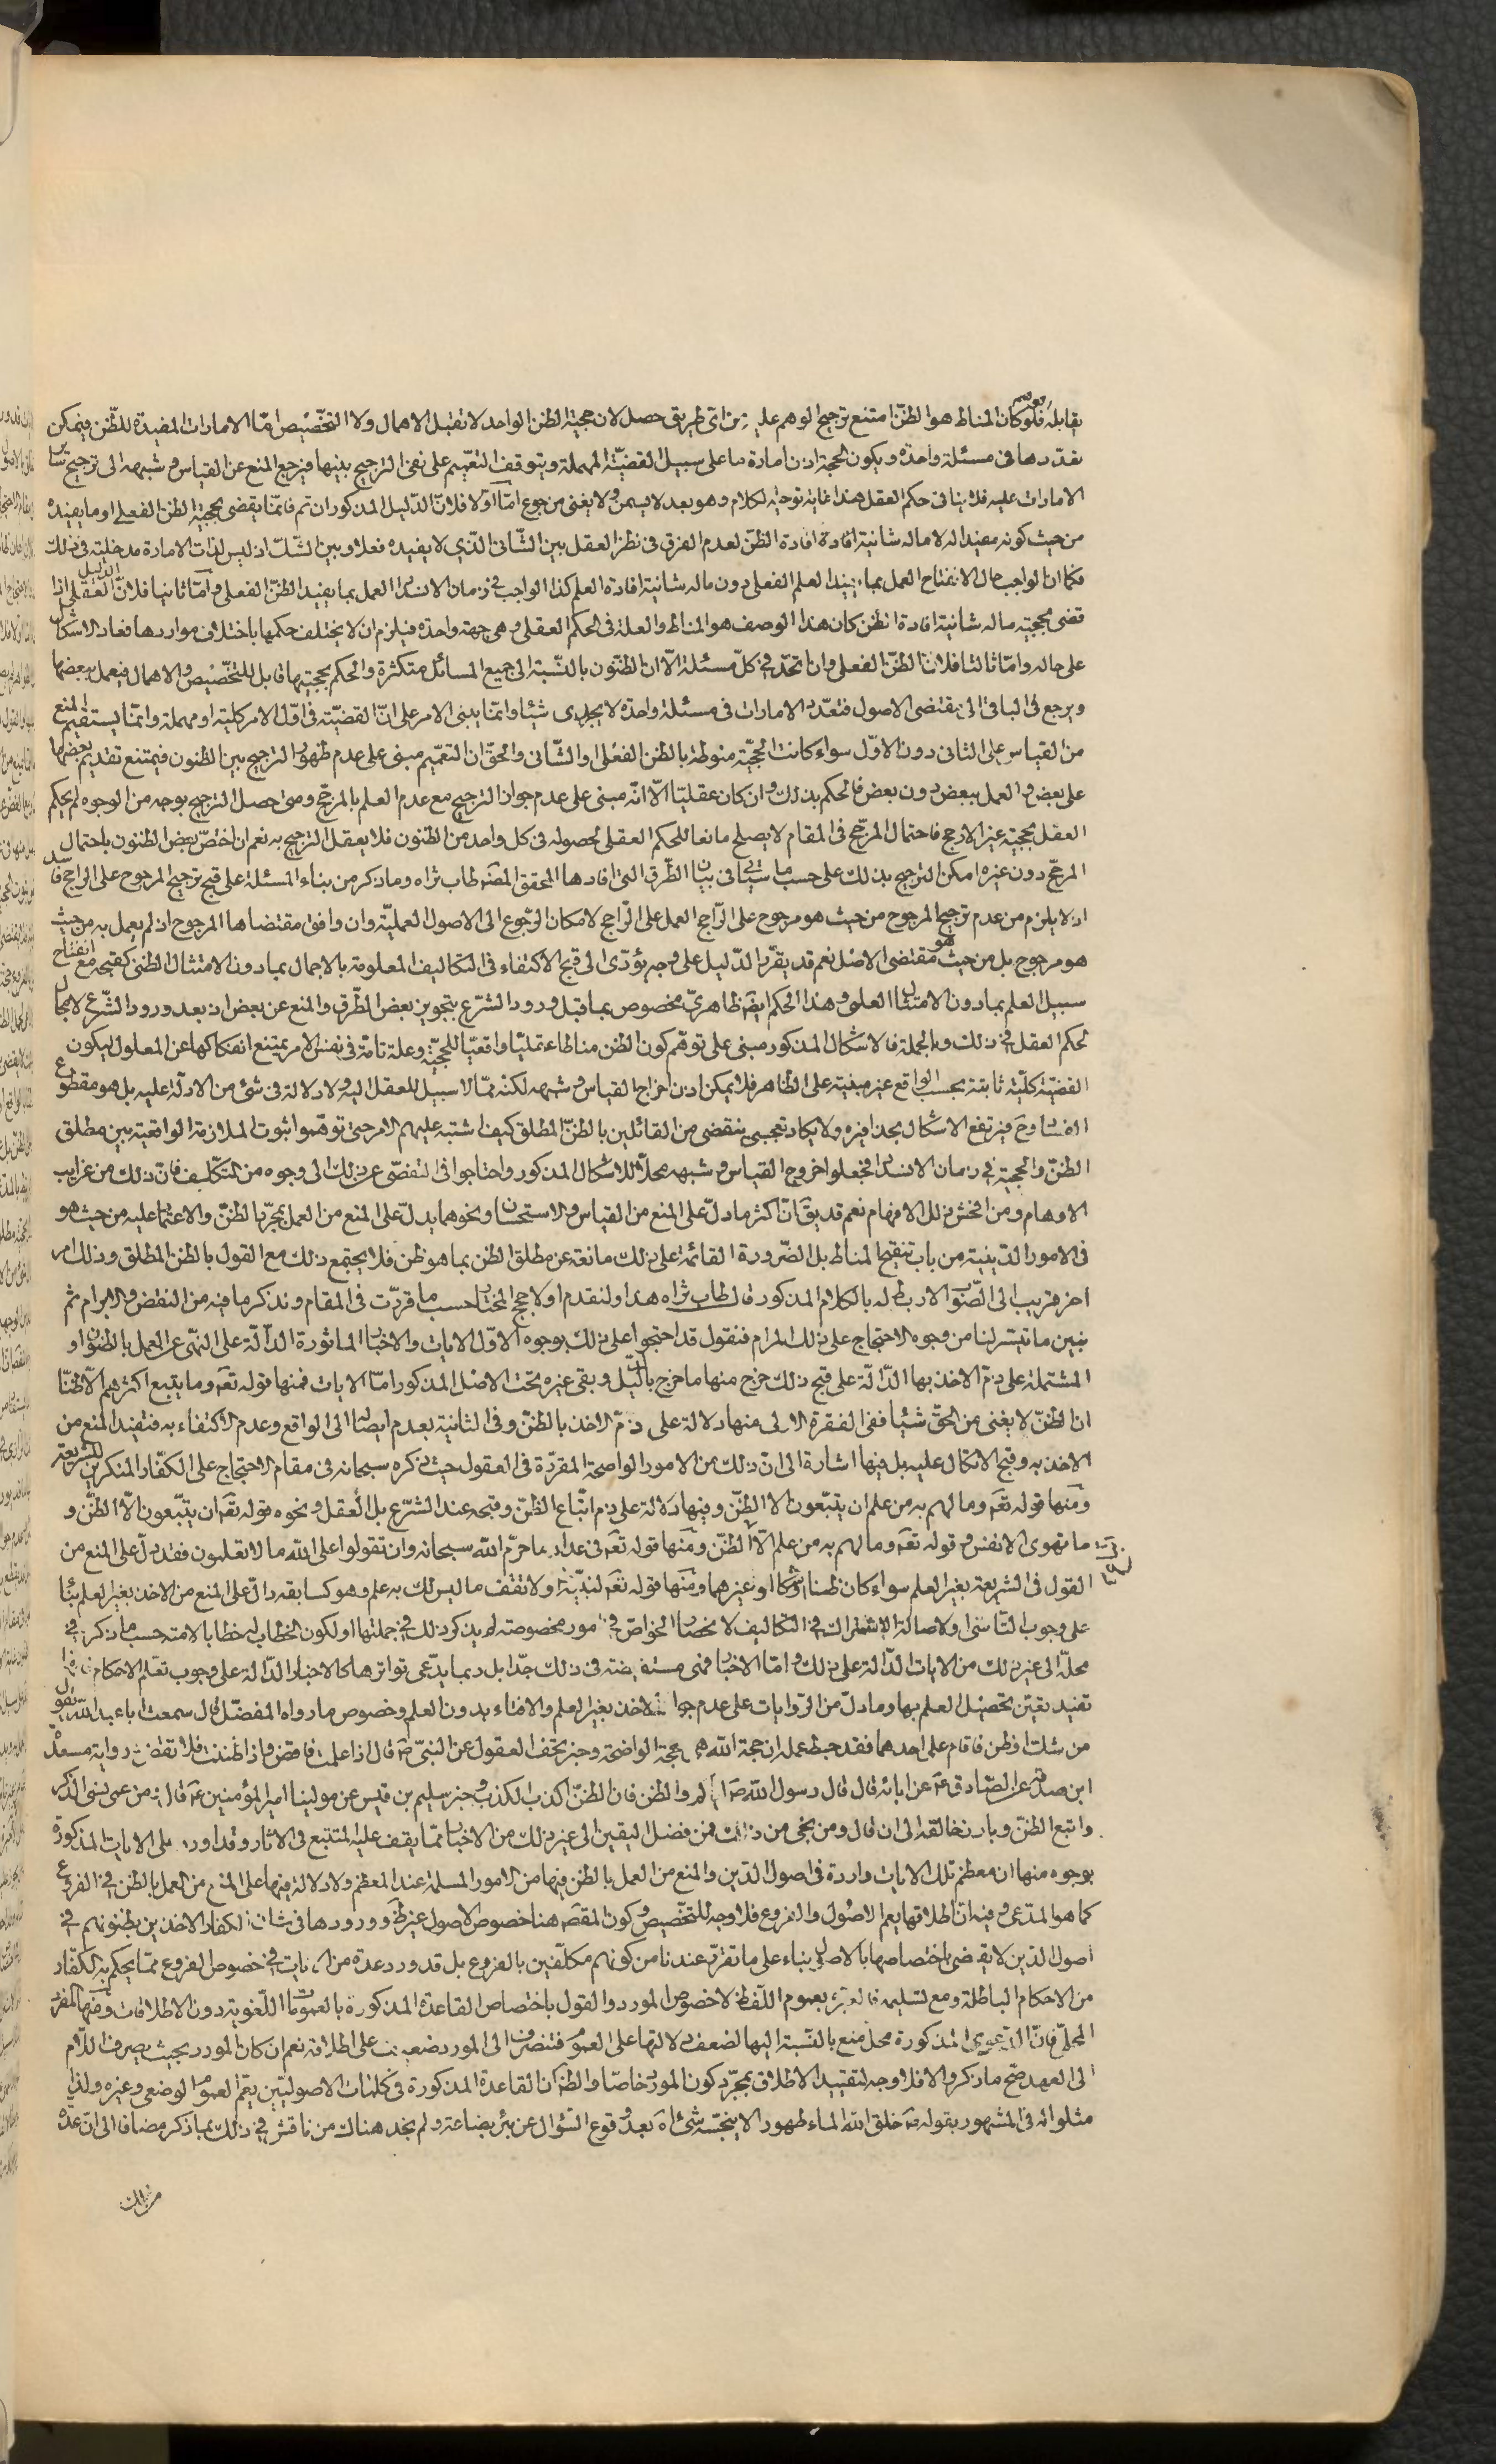 يقابله فلو كان المناط هو الظنّ امتنع ترجيح الوهم عليه من اىّ طريق حصل لان حجية الظن الواحد لا تقبل الاهمال ولا التخصيص امّا الامارات المفيدة للظّن فيمكن
تعدّدها فى مسئلة واحدة ويكون الحجة اذن امارة ما على سبيل القضيّة المهملة ويتوقف التعميم على نفى الترجيح بينها فيرجع المنع عن القياس وشبهه الى ترجيح سائر
الامارات عليه فلا ينافى حكم العقل هذا غاية توجيه الكلام وهو بعد لا يسمن ولا يغنى من جوع امّا اوّلا فلانّ الدّليل المذكور ان تم فانّما يقضى بحجية الظن الفعلى او ما يفيده
من حيث كونه مفيدا له لا ماله شانية افادة الظنّ لعدم الفرق فى نظر العقل بين الشّانى الّذى لا يفيده فعلا وبين الشّك اذ ليس لذات الامارة مدخلية فى ذلك
فكما انّ الواجب حال الانفتاح العمل بما يفيد العلم الفعلى دون ماله شانية افادة العلم كذا الواجب فى زمان الانسداد العمل بما يفيد الظنّ الفعلى وامّا ثانيا فلانّ الدّليل العقلى اذا
قضى بحجية ماله شانية افادة الظن كان هذا الوصف هو المناط والعلة فى الحكم العقلى وهى جهة واحدة فيلزم ان لا يختلف حكمها باختلاف مواردها فعاد الاشكال
على حاله وامّا ثالثا فلانّ الظنّ الفعلى وان اتحد فى كلّ مسئلة الّا ان الظنون بالنّسبة الى جميع المسائل متكثرة والحكم بحجيتها قابل للتخصيص والاهمال فيعمل ببعضها
ويرجع فى الباقى الى مقتضى الاصول فتعدّد الامارات فى مسئلة واحدة لا يجدى شيئا وانّما يبنى الامر على انّ القضيّة فى اوّل الامر كلية او مهملة وانّما يستقيم المنع
من القياس على الثانى دون الاوّل سواء كانت الحجيّة منوطة بالظن الفعلى او الشّانى والحقّ ان التعميم مبنى على عدم ظهور الترجيح بين الظنون فيمتنع تقديم بعضها
على بعض والعمل ببعض دون بعض فالحكم بذلك وان كان عقليّا الّا انّه مبنى على عدم جواز الترجيح مع عدم العلم بالمرجّح ومتى حصل الترجيح بوجه من الوجوه لم يحكم
العقل بحجية غير الارجح فاحتمال المرجّح فى المقام لا يصلح مانعا للحكم العقلى لحصوله فى كل واحد من الظنون فلا يعقل الترجيح به نعم ان اختصّ بعض الظنون باحتمال
المرجّح دون غيره امكن الترجيح بذلك على حسب ما سيأتى فى بيان الطّرق التى افادها المحقق المصنّف طاب ثراه وما ذكر من بناء المسئلة على قبح ترجيح المرجوح على الراجح فاسد
اذ لا يلزم من عدم ترجيح المرجوح من حيث هو مرجوح على الرّاجح العمل على الرّاجح لامكان الرّجوع الى الاصول العمليّة وان وافق مقتضاها المرجوح اذ لم يعمل به من حيث
هو مرجوح بل من حيث هو مقتضى الاصل نعم قد يقرّر الدّليل على وجه يؤدّى الى قبح الاكتفاء فى التكاليف المعلومة بالاجمال بما دون الامتثال الظنى كقبحه مع انفتاح
سبيل العلم بما دون الامتثال العلمى وهذا الحكم ايضا ظاهرىّ مخصوص بما قبل ورود الشرع بتجويز بعض الطّرق والمنع عن بعض اذ بعد ورود الشّرع لا مجال
لحكم العقل فى ذلك وبالجملة فالاشكال المذكور مبنى على توهّم كون الظن مناطا عقليّا واقعيّا للحجيّة وعلة تامّة فى نفس الامر يمتنع انفكاكها عن المعلول ليكون
القضيّة كليّة ثابتة بحسب الواقع غير مبنية على الظاهر فلا يمكن اذن اخراج القياس وشبهه لكنه ممّا لا سبيل للعقل اليه ولا دلالة فى شئ من الادلّة عليه بل هو مقطوع
الفساد وح فيرتفع الاشكال بحذافيره ولا يكاد تعجبى ينقضى من القائلين بالظنّ المطلق كيف اشتبه عليهم الامر حتى توهّموا ثبوت الملازمة الواقعية بين مطلق
الظنّ والحجية فى زمان الانسداد فجعلوا خروج القياس وشبهه محلّا للاشكال المذكور واحتاجوا فى التفصّى عن ذلك الى وجوه من التكلّف فانّ ذلك من غرايب
الاوهام ومن افحش زلل الافهام نعم قد يقال انّ اكثر ما دلّ على المنع من القياس والاستحسان ونحوهما يدلّ على المنع من العمل بمجرّد الظنّ والاعتماد عليه من حيث هو
فى الامور الدّينية من باب تنقيح المناط بل الضّرورة القائمة على ذلك مانعة عن مطلق الظن بما هو ظن فلا يجتمع ذلك مع القول بالظن المطلق وذلك امر
اخر قريب الى الصّواب لا ربط له بالكلام المذكور قال طاب ثراه هذا ولنقدم اولا حجج المختار حسب ما قررّت فى المقام ونذكر ما فيه من النقض والابرام ثم
نبين ما تيسّر لنا من وجوه الاحتجاج على ذلك المرام فنقول قد احتجوا على ذلك بوجوه الاوّل الايات والاخبار الماثورة الدّالّة على النّهى عن العمل بالظنّ او
المشتملة على ذمّ الاخذ بها الدّالّة على قبح ذلك خرج منها ما خرج بالدّليل وبقى غيره تحت الاصل المذكور امّا الايات فمنها قوله تعه وما يتبع اكثرهم الّا ظنّا
انّ الظنّ لا يغنى من الحقّ شيئا ففى الفقرة الاولى منها دلالة على ذمّ الاخذ بالظنّ وفى الثانية بعدم ايصاله الى الواقع وعدم الاكتفاء به فتفيد المنع من
الاخذ به وقبح الاتكال عليه بل فيها اشارة الى انّ ذلك من الامور الواضحة المقرّرة فى العقول حيث ذكره سبحانه فى مقام الاحتجاج على الكفّار المنكرين للشريعة
ومنها قوله تعه وما لهم به من علم ان يتّبعون الا الظنّ وفيها دلالة على ذم اتّباع الظنّ وقبحه عند الشرّع بل العقل ونحوه قوله تعه ان يتّبعون الّا الظنّ و
ما تهوى الانفس وقوله تعه وما لهم به من علم الّا الظنّ ومنها قوله تعه فى عداد ما حرّم الله سبحانه وان تقولوا على الله ما لا تعلمون فقد دلّ على المنع من
القول فى الشريعة بغير العلم سواء كان ظنا او شكا او غيرهما ومنها قوله تعه لنبيّه ولا تقف ما ليس لك به علم وهو كسابقه دالّ على المنع من الاخذ بغير العلم بناء
على وجوب التاسّى او لاصالة الاشتراك فى التكاليف لانحصار الخواصّ فى امور مخصوصة لم يذكر ذلك فى جملتها او لكون الخطاب له خطابا لامته حسب ما ذكر فى
محلّه الى غير ذلك من الايات الدّالة على ذلك وامّا الاخبار فهى مستفيضة فى ذلك جدّا بل ربما يدّعى تواترها كالاخبار الدّالة على وجوب تعلم الاحكام
تفيد تعيّن تحصيل العلم بها وما دلّ من الرّوايات على عدم جواز الاخذ بغير العلم والافتاء بدون العلم وخصوص ما رواه المفضّل قال سمعت ابا عبد الله يقول
من شك او ظن فاقام على احدهما فقد حبط عمله ان حجة الله هى الحجة الواضحة وخبر تحف العقول عن النبىّ ص قال اذا علمت فامض واذا ظننت فلا تقض ورواية مسعدة
ابن صدقة عن الصّادق ع عن ابائه قال قال رسول الله ص اياكم والظن فان الظنّ اكذب الكذب وخبر سليم بن قيس عن مولينا امير المؤمنين ع قال من عمى نسى الذكر
واتبع الظنّ وبارز خالقه الى ان قال ومن نجى من ذلك فمن فضل اليقين الى غير ذلك من الاخبار ممّا يقف عليه المتتبع فى الاثار وقد اورد على الايات المذكورة
بوجوه منها ان معظم تلك الايات واردة فى اصول الدّين والمنع من العمل بالظن فيها من الامور المسلمة عند المعظم ولا دلالة فيها على المنع من العمل بالظن فى الفروع
كما هو المدّعى وفيه انّ اطلاقها يعم الاصول والفروع فلا وجه للتخصيص وكون المقصّ هنا خصوص الاصول غير ظ وورودها فى شان الكفار الاخذين بظنونهم فى
اصول الدّين لا يقضى باختصاصها بالاصول بناء على ما تقرّر عندنا من كونهم مكلّفين بالفروع بل قد ورد عدة من الايات فى خصوص الفروع ممّا يحكم به الكفّار
من الاحكام الباطلة ومع تسليمه فالعبرة بعموم اللّفظ لا خصوص المورد والقول باختصاص القاعدة المذكورة بالعمومات اللّغوية دون الاطلاقات ومنها المفرد
المحلّى فانّ الدّعوى المذكورة محل منع بالنّسبة اليها لضعف دلالتها على العموم فتنصرف الى المورد ضعيف على اطلاقه نعم ان كان المورد بحيث يصرف اللّام
الى العهد صحّ ما ذكر والا فلا وجه لتقييد الاطلاق بمجرّد كون المورد خاصّا والظ انّ القاعدة المذكورة فى كلمات الاصوليّين يعمّ العموم الوضعى وغيره ولذا
مثلوا له فى المشهور بقوله ص خلق الله الماء طهورا لا ينجّسه شئ اه بعد وقوع السّؤال عن بئر بضاعة ولم نجد هناك من ناقش فى ذلك بما ذكر مضافا الى انّ عدة
من تلك